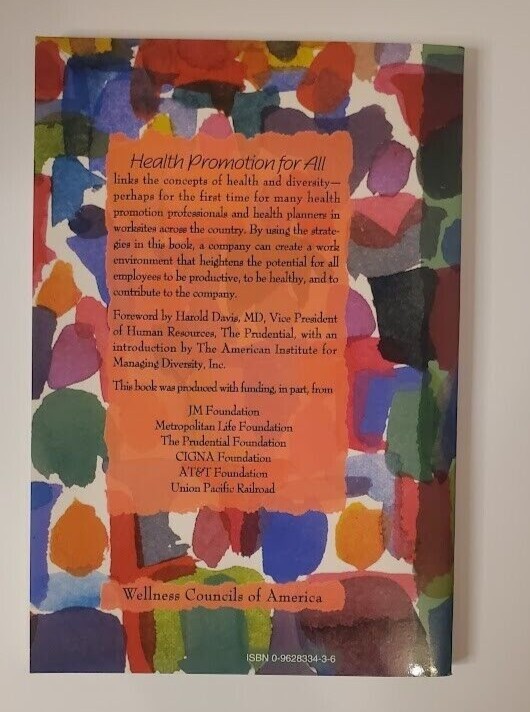 Health Promotion for All
links the concepts of health and diversity—
perhaps for the first time for many health
promotion professionals and health planners in
worksites across the country. By using the strate-
gies in this book, a company can create a work
environment that heightens the potential for all
employees to be productive, to be healthy, and to
contribute to the company.
Foreword by Harold Davis, MD, Vice President
of Human Resources, The Prudential, with an
introduction by The American Institute for
Managing Diversity, Inc.
This book was produced with funding, in part, from
JM Foundation
Metropolitan Life Foundation
The Prudential Foundation
CIGNA Foundation
AT&T Foundation
Union Pacific Railroad
Wellness Councils of America
ISBN 0-9628334-3-6